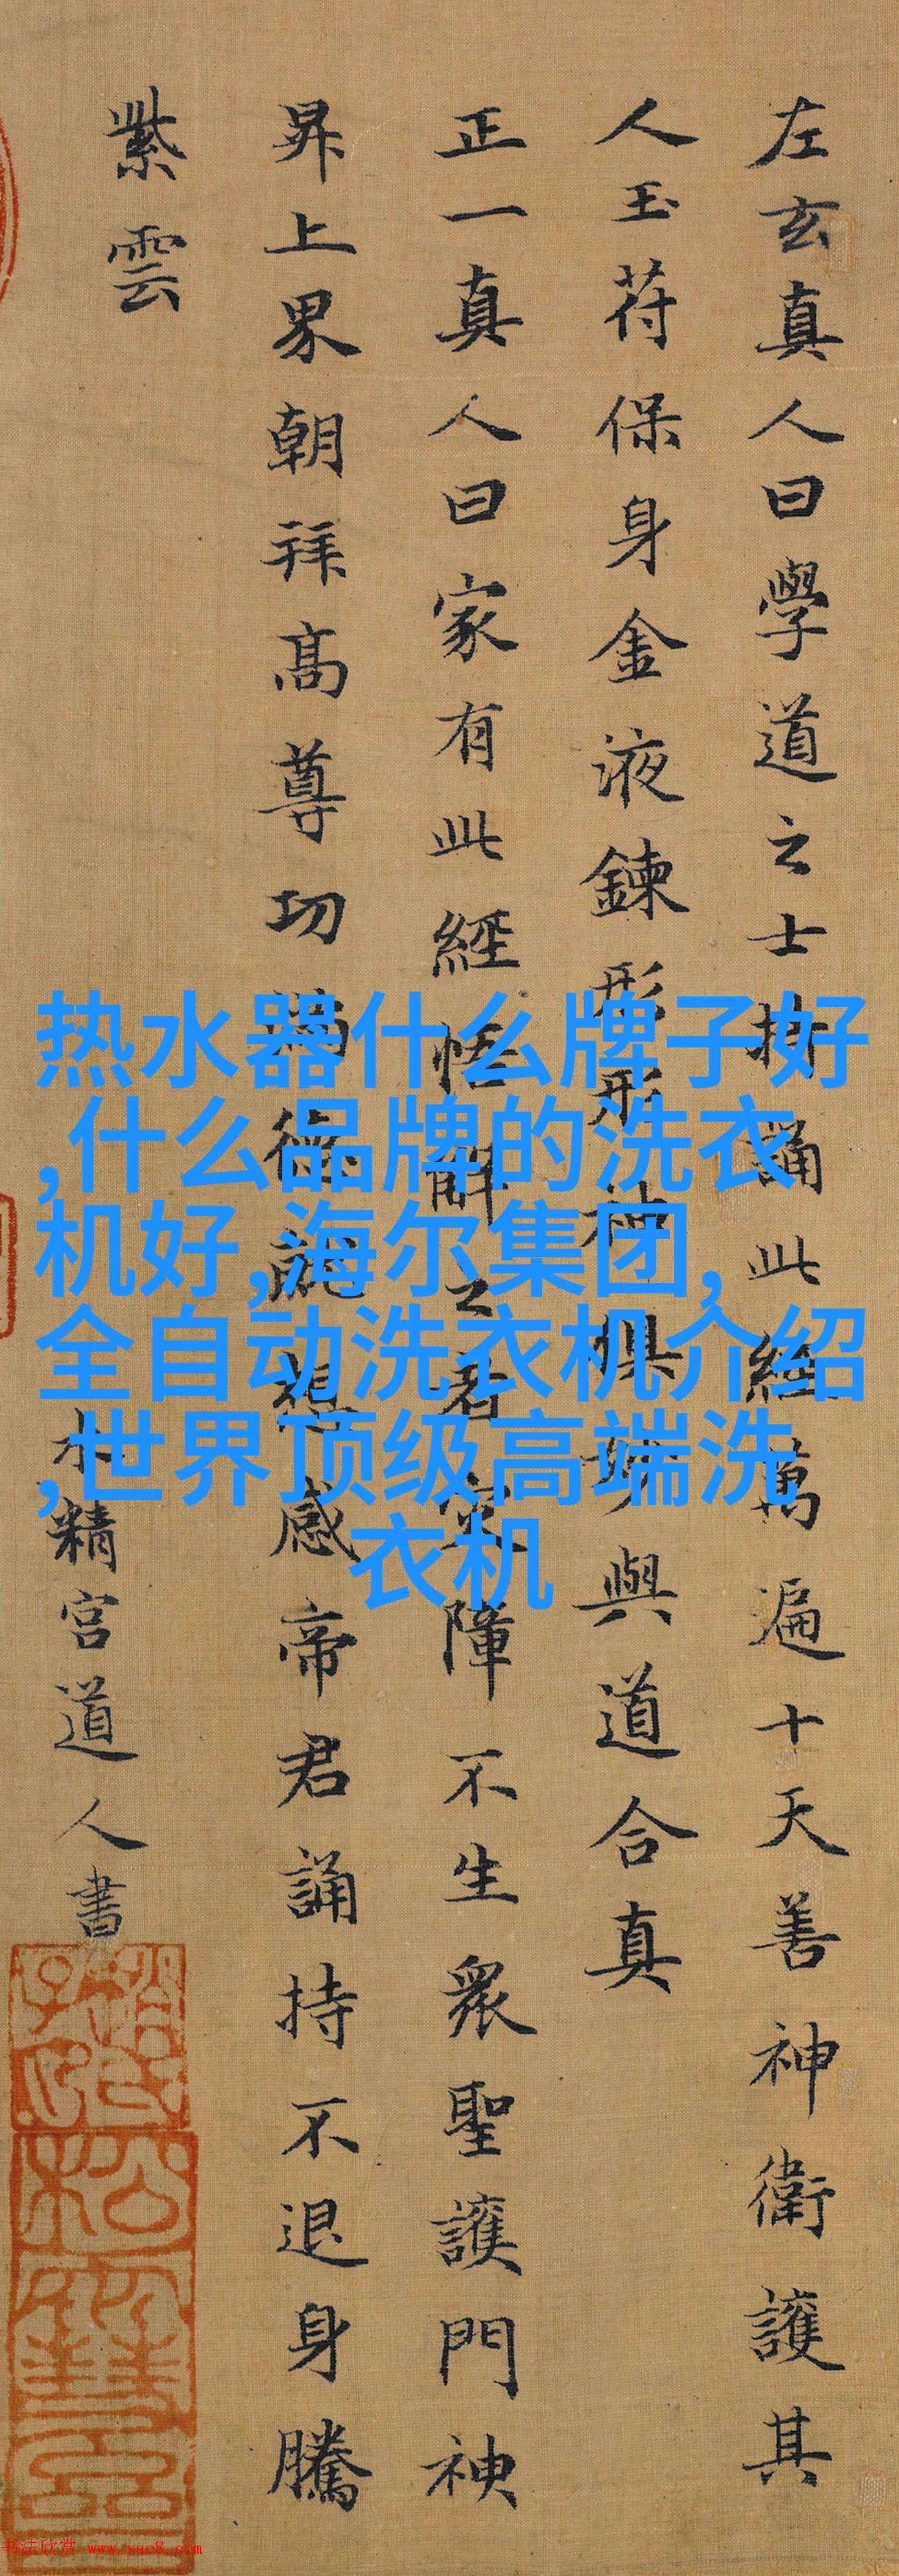 左玄真人曰學道之士持誦此經萬遍十天善神衛護其
人玉苻保身金液鍊形形神俱妙與道合真
正一真人曰家有此經悟解之者灾障不生衆聖護門神
昇上界朝拜高尊功滿德就想感帝君誦持不退身騰
紫雲
水精宮道人書
热水器什么牌子好
,什么品牌的洗衣
机好,海尔集团,
全自动洗衣机介绍
,世界顶级高端洗
衣机
书法欣赏 www.yac8.com